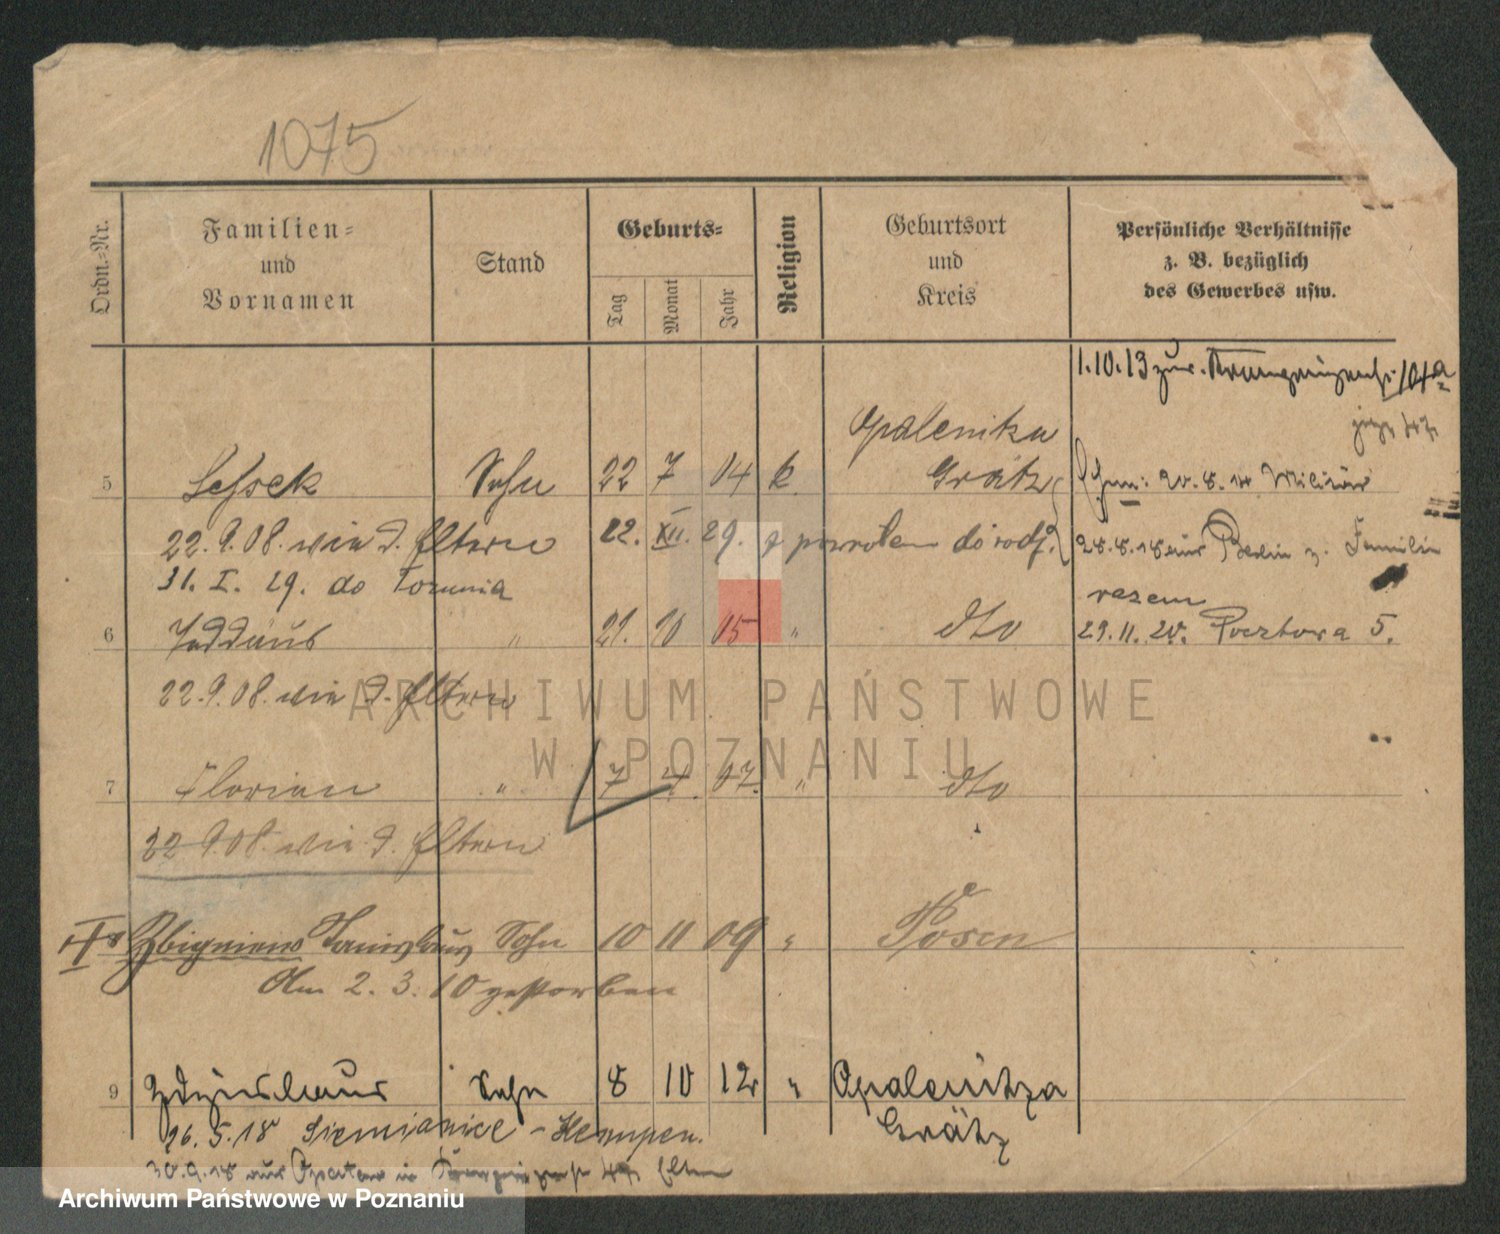 1075
Ordn.-Nr.
Familien-
und
Vornamen
Stand
Geburts-
Tag
Monat
Jahr
Religion
Geburtsort
und
Kreis
Persönliche Verhältnisse
z. B. bezüglich
des Gewerbes usw.
1.10.13 zur. 101a
5 Leszek Sohn 22 7 04 k. Opalenika
Grätz
20.8.18 Militär
22.9.08. wie d. Eltern 22. XII. 29. z powrotem do rodz.
28.8.18 aus Berlin z. Familie
31. I. 29. do Torunia
razem
6 Taddäus " 21. 10 05 " dto
29.11.20. Pocztowa 5.
22.9.08. wie d. Eltern
7 Florian " 7 4. 07. " dto
22.9.08. wie d. Eltern
Zbigniew Stanislaus Sohn 10 11 09 " Posen
Am 2. 3. 10 gestorben
9 Zdzislaus Sohn 8 10 12 " Opalenitza
Grätz
26.5.18 Siemianice - Kempen.
30.9.18 aus in Eltern
ARCHIWUM PAŃSTWOWE
W POZNANIU
Archiwum Państwowe w Poznaniu